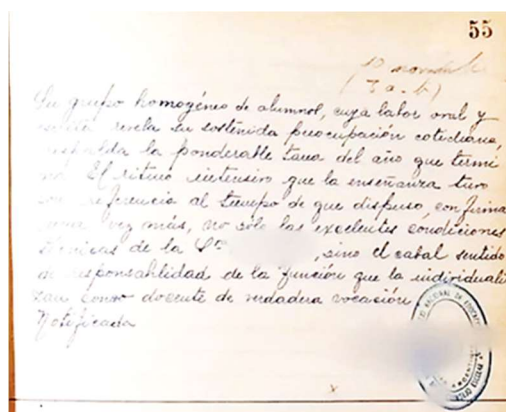 55
10 noviembre
(3 a. b)
Su grupo homogéneo de alumnos, cuya labor oral y
escrita revela su sostenida preocupación cotidiana,
respalda la ponderable tarea del año que termi
na. El ritmo intensivo que la enseñanza tuvo
con referencia al tiempo de que dispuso, confirma
una vez más, no sólo las excelentes condiciones
técnicas de la Sta. , sino el cabal sentido
de responsabilidad de la función que la individuali
zan como docente de verdadera vocación.
Notificada
NACIONAL DE EDUCACIÓN